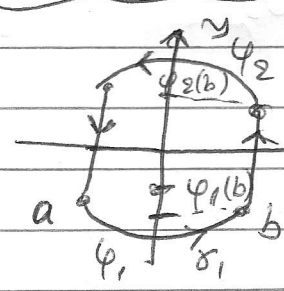 y
φ₂
φ₂(b)
φ₁(b)
a
b
φ₁
γ₁